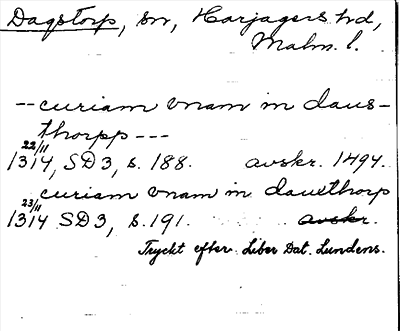 Dagstorp, sn, Harjagers hd,
Malm. l.
-- curiam vnam in daus-
thorpp ---
22/11
1314, SD3, s. 188. avskr. 1494.
curiam vnam in dauxthorp
23/11
1314 SD3, s. 191. avskr.
Tryckt efter Liber Dat. Lundens.